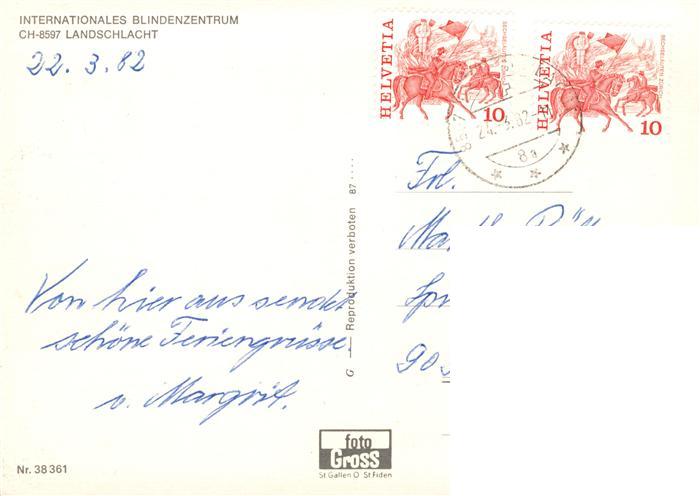 INTERNATIONALES BLINDENZENTRUM
CH-8597 LANDSCHLACHT
22. 3. 82
HELVETIA
SECHSELÄUTEN ZÜRICH
10
HELVETIA
SECHSELÄUTEN ZÜRICH
10
24.-3.82
8a
Frl.
Von hier aus sendet
schöne Feriengrüsse
v. Margrit.
G Reproduktion verboten 87 ....
foto
Gross
St Gallen O St Fiden
Nr. 38 361